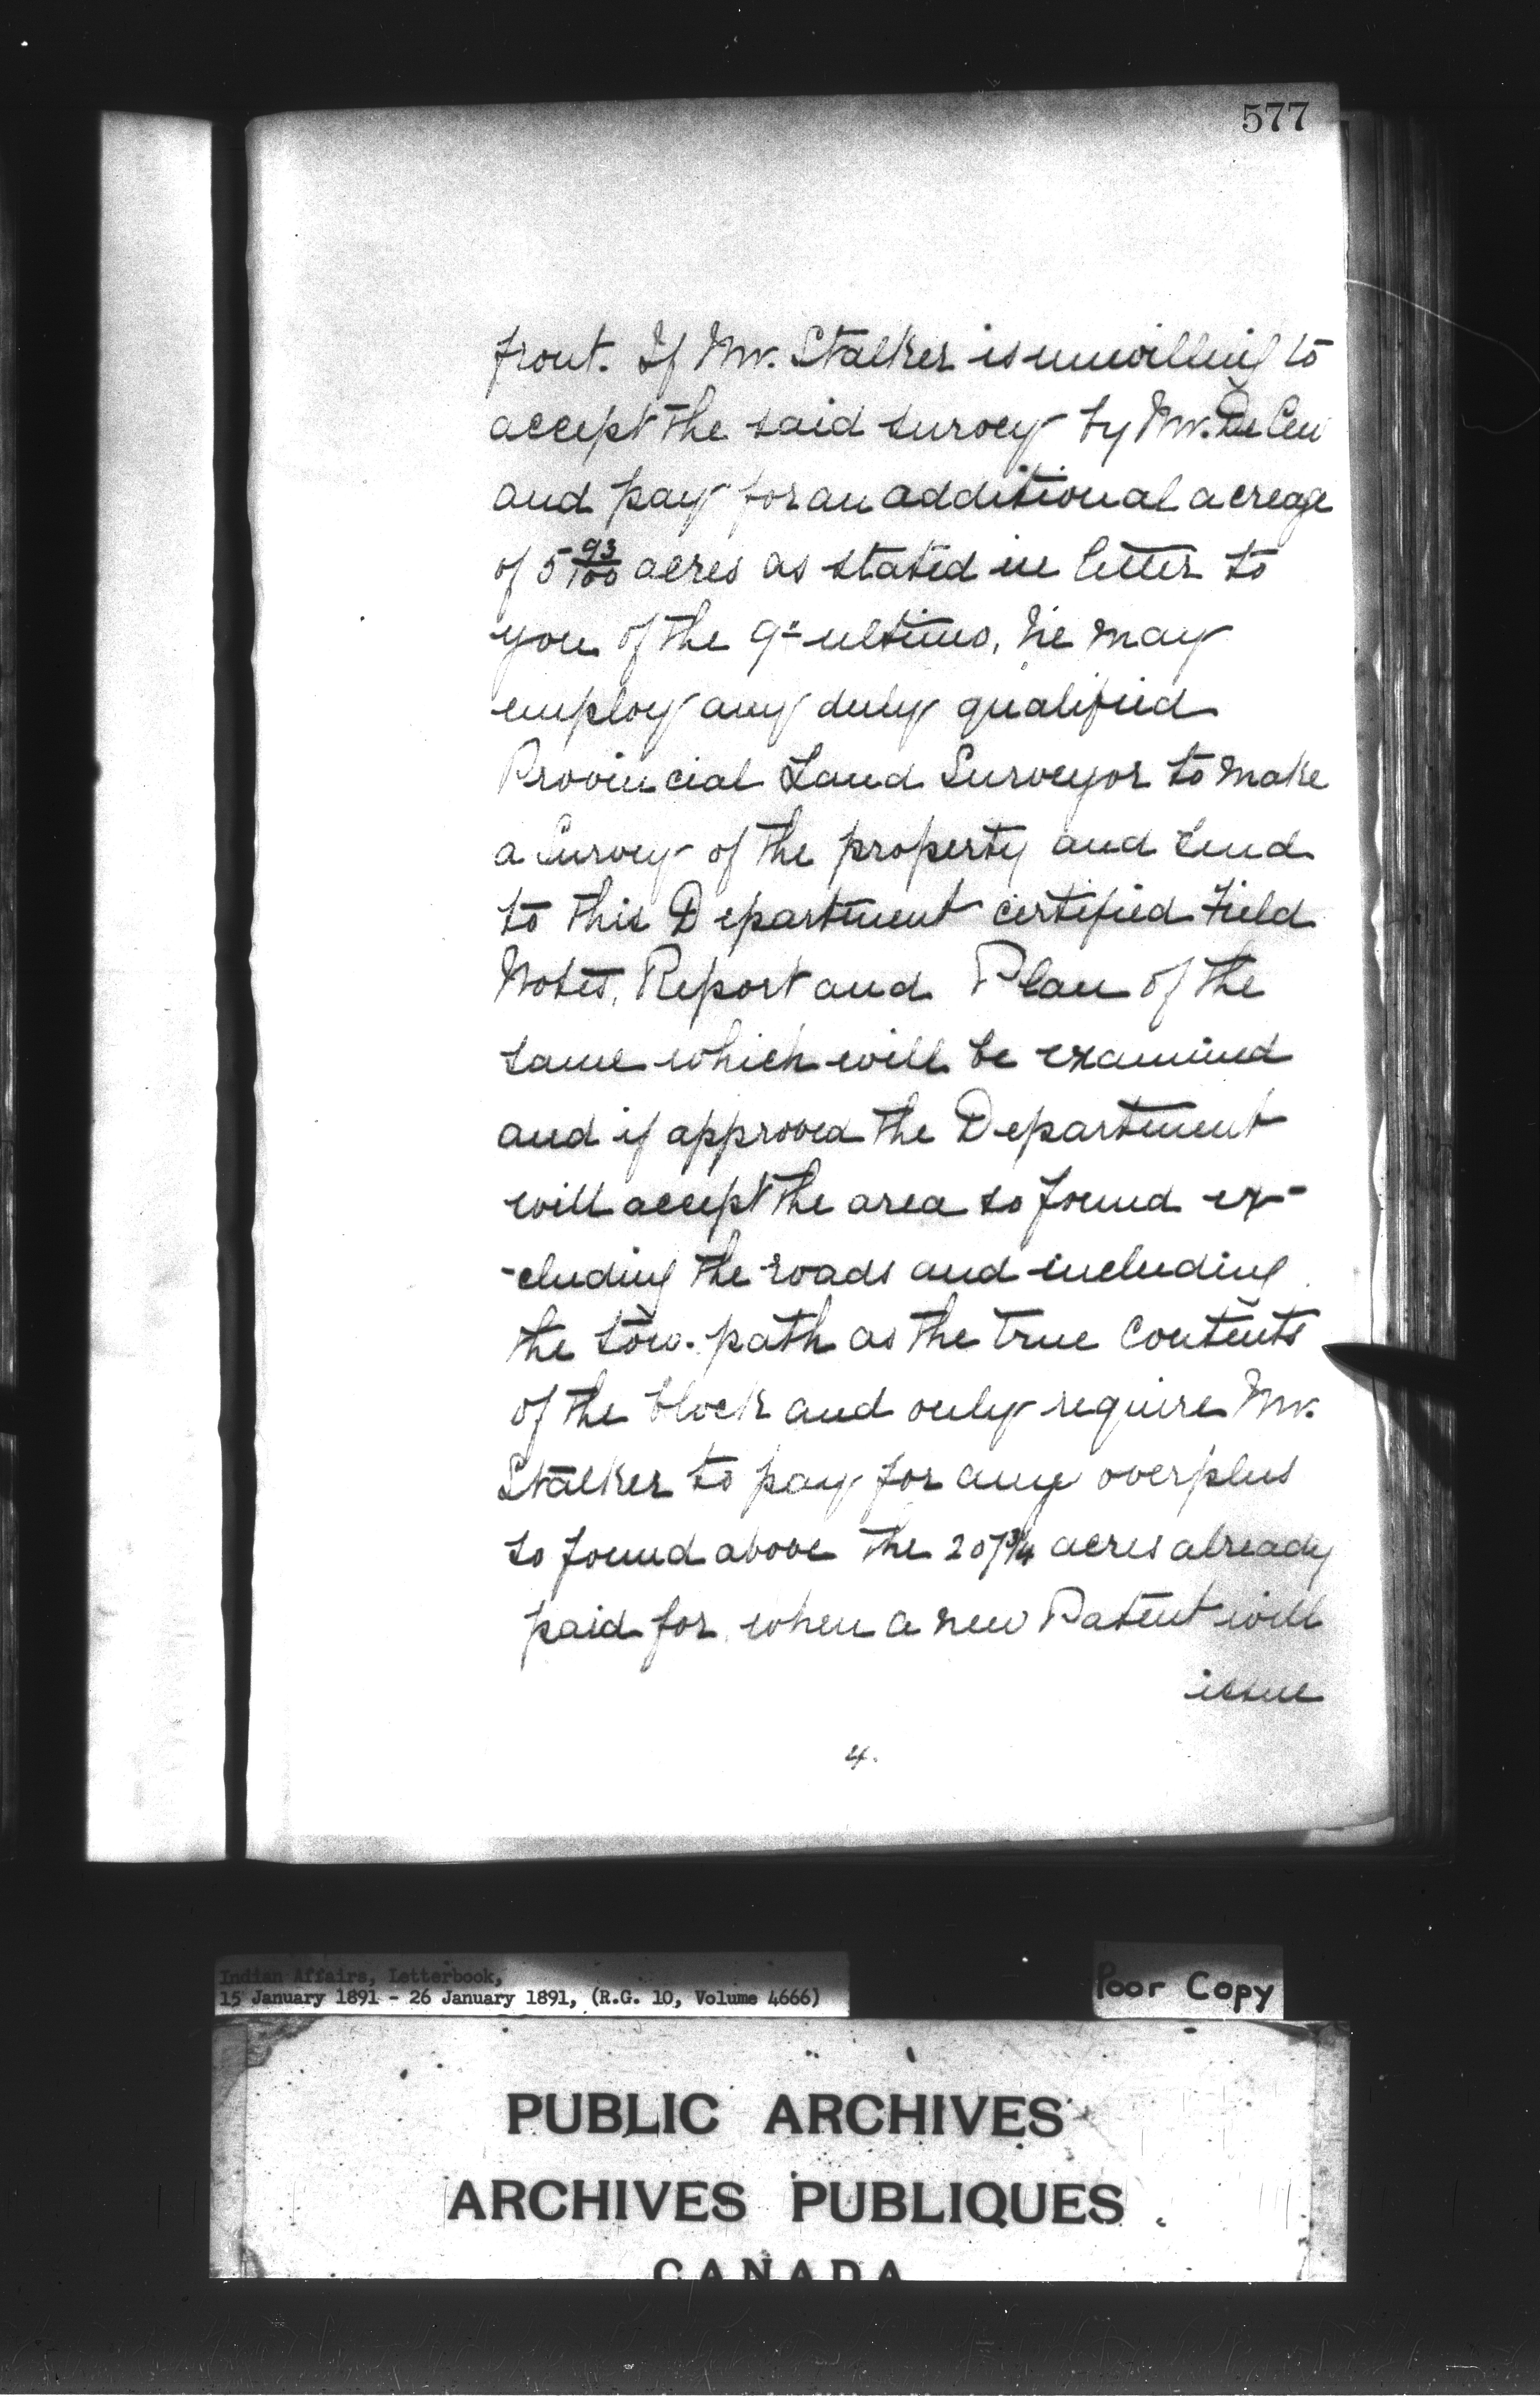 577
front. If Mr. Stalker is unwilling to
accept the said survey by Mr. De Cew
and pay for an additional acreage
of 5 93/100 acres as stated in letter to
you of the 9th ultimo, he may
employ any duly qualified
Provincial Land Surveyor to make
a Survey of the property and send
to this Department certified Field
Notes, Report and Plan of the
same which will be examined
and if approved the Department
will accept the area so found ex-
-cluding the roads and including
the tow-path as the true contents
of the block and only require Mr.
Stalker to pay for any overplus
so found above the 207 3/4 acres already
paid for, when a new Patent will
issue
4.
Indian Affairs, Letterbook,
15 January 1891 - 26 January 1891, (R.G. 10, Volume 4666)
Poor Copy
PUBLIC ARCHIVES
ARCHIVES PUBLIQUES
CANADA